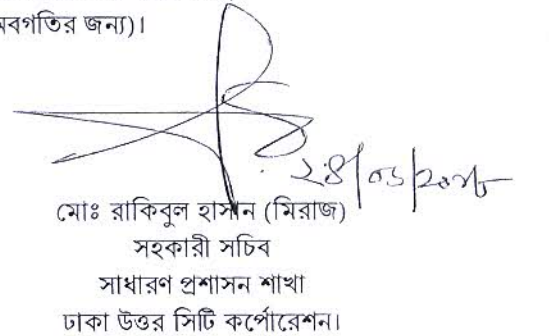 বগতির জন্য)।
মোঃ রাকিবুল হাসান (মিরাজ)
সহকারী সচিব
সাধারণ প্রশাসন শাখা
ঢাকা উত্তর সিটি কর্পোরেশন।